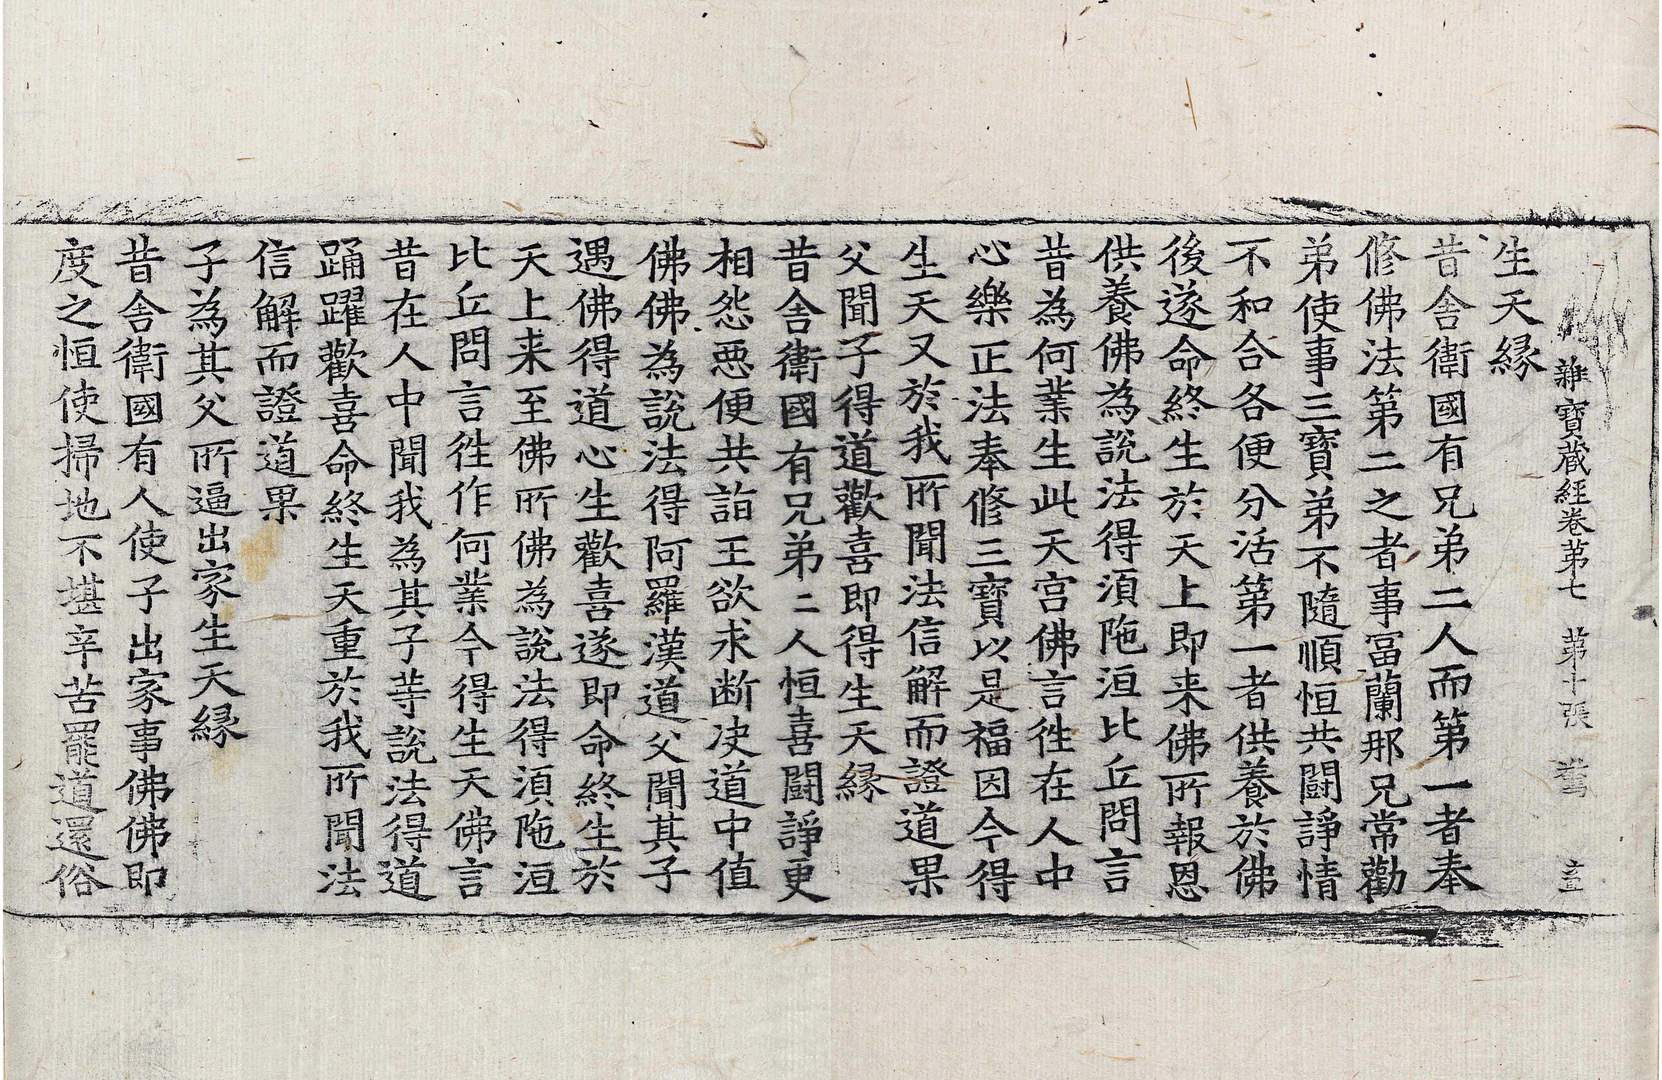 雜寶藏經卷第七 第十張
生天緣
昔舍衛國有兄弟二人而第一者奉
修佛法第二之者事冨蘭那兄常勸
弟使事三寶弟不隨順恒共鬪諍情
不和合各便分活第一者供養於佛
後遂命終生於天上即来佛所報恩
供養佛為說法得湏陁洹比丘問言
昔為何業生此天宫佛言徃在人中
心樂正法奉修三寶以是福因今得
生天又於我所聞法信解而證道果
父聞子得道歡喜即得生天緣
昔舍衛國有兄弟二人恒喜鬪諍更
相怨惡便共詣王欲求断决道中值
佛佛為說法得阿羅漢道父聞其子
遇佛得道心生歡喜遂即命終生於
天上来至佛所佛為說法得湏陁洹
比丘問言徃作何業今得生天佛言
昔在人中聞我為其子等說法得道
踊躍歡喜命終生天重於我所聞法
信解而證道果
子為其父所逼出家生天緣
昔舍衛國有人使子出家事佛佛即
度之恒使掃地不堪辛苦罷道還俗